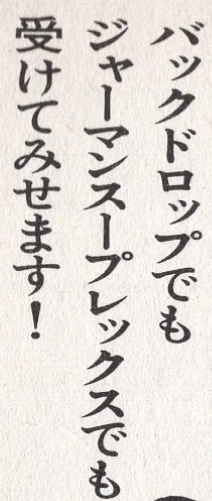 バックドロップでも
ジャーマンスープレックスでも
受けてみせます！